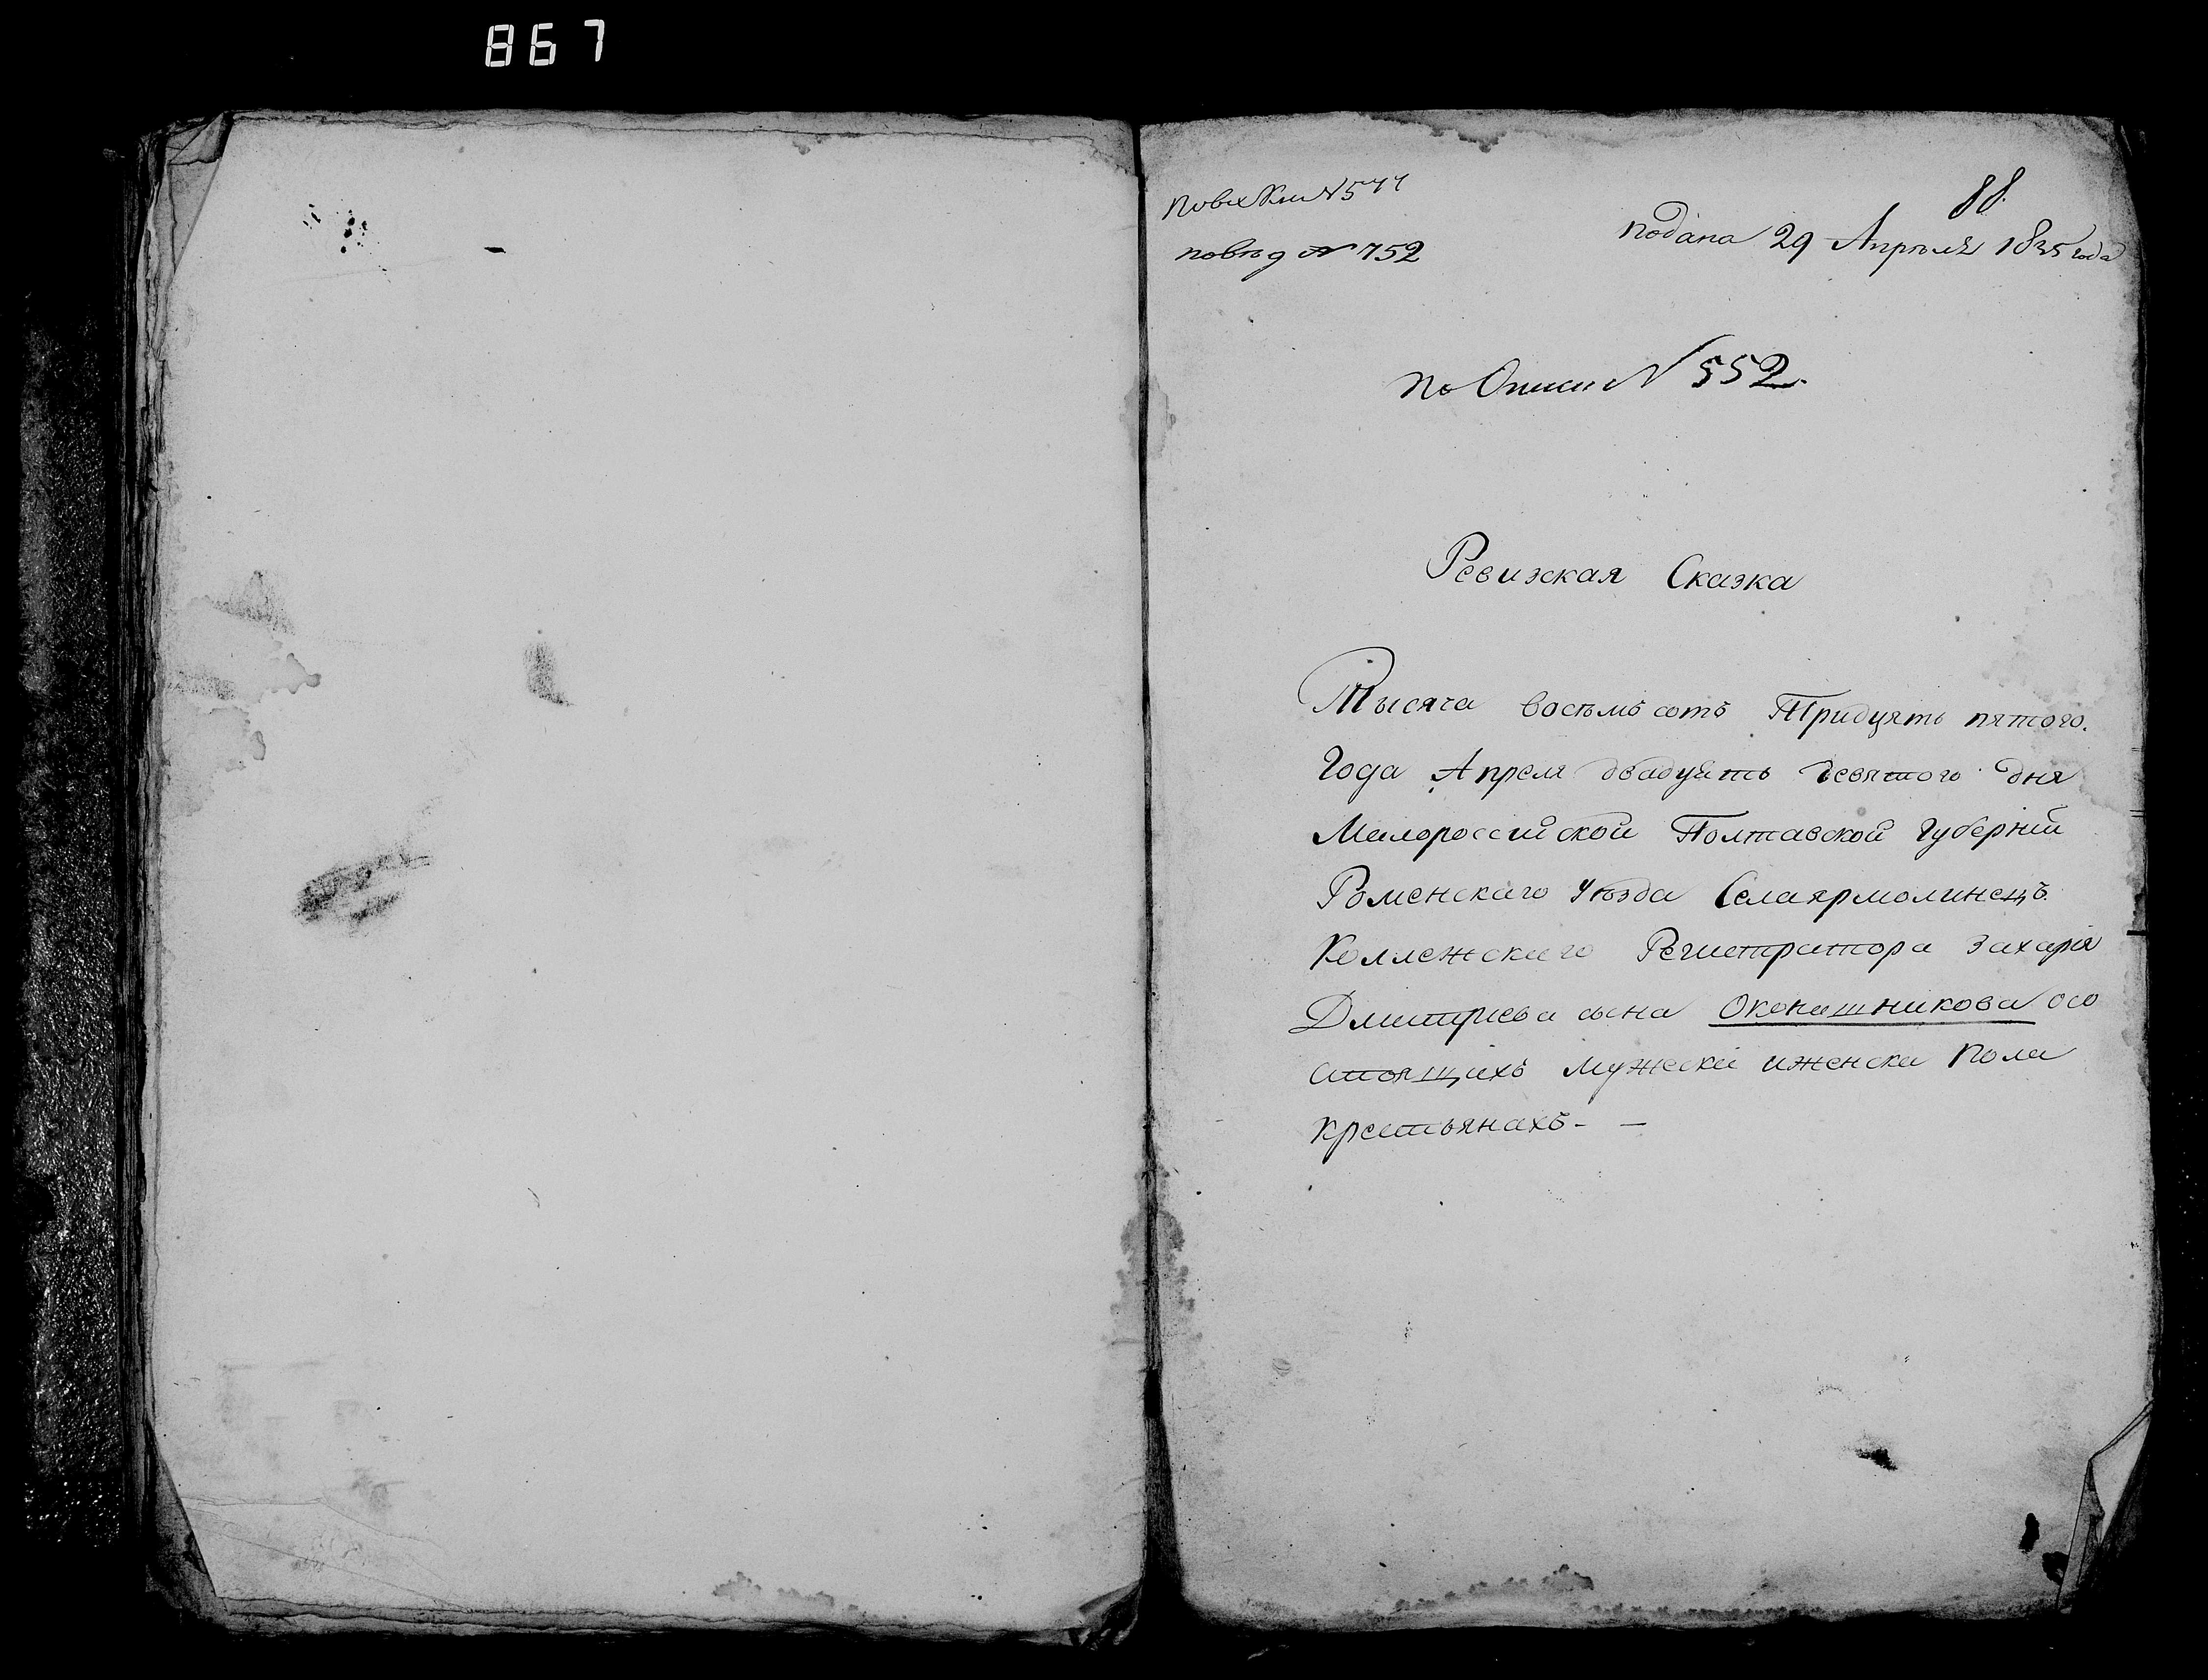 867
88.
подана 29 Апреля 1835 года
№ 752
по Описи № 552.
Ревизкая Сказка
Тысяча восемъ сотъ Тридцять пятого.
Года Апреля двадцять девятого дня
Малороссийской Полтавской Губерніи
Роменскаго Уѣзда Селаярмолинецъ
Коллежскаго Регистратора Захарія
Дмитріева сына Оконишникова осо
стоящихъ мужеска иженска пола
крестьянахъ- —